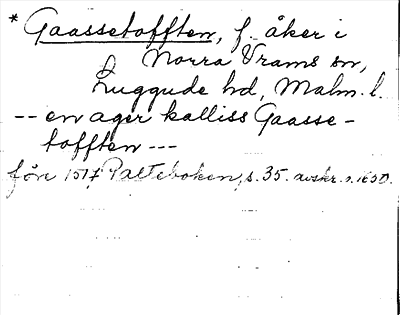 * Gaassetofften, f. åker i
Norra Vrams sn,
Luggude hd, Malm. l.
-- en ager kalliss Gaasse-
tofften ---
före 1517 Palteboken, s. 35. avskr. o. 1650.